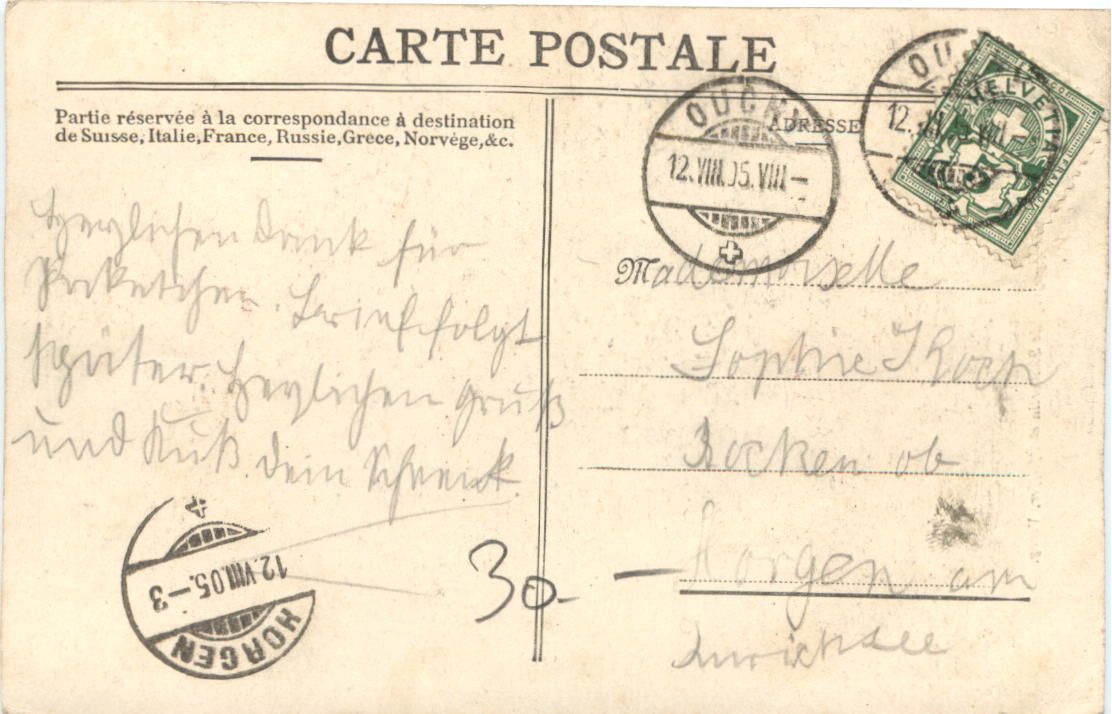 CARTE POSTALE
Partie réservée à la correspondance à destination
de Suisse, Italie, France, Russie, Grèce, Norvège, &c.
ADRESSE
Herzlichen Dank für
Paketchen. Brief folgt
später. Herzlichen Gruß
und Kuß dein
Mademoiselle
Sophie Koch
Bocken ob
Horgen am
Zürichsee
30.-
OUCHY
12.VIII.05.VIII-
OU
12.VIII
HELVETIA
FRANCO
HORGEN
12.VIII.05.-3